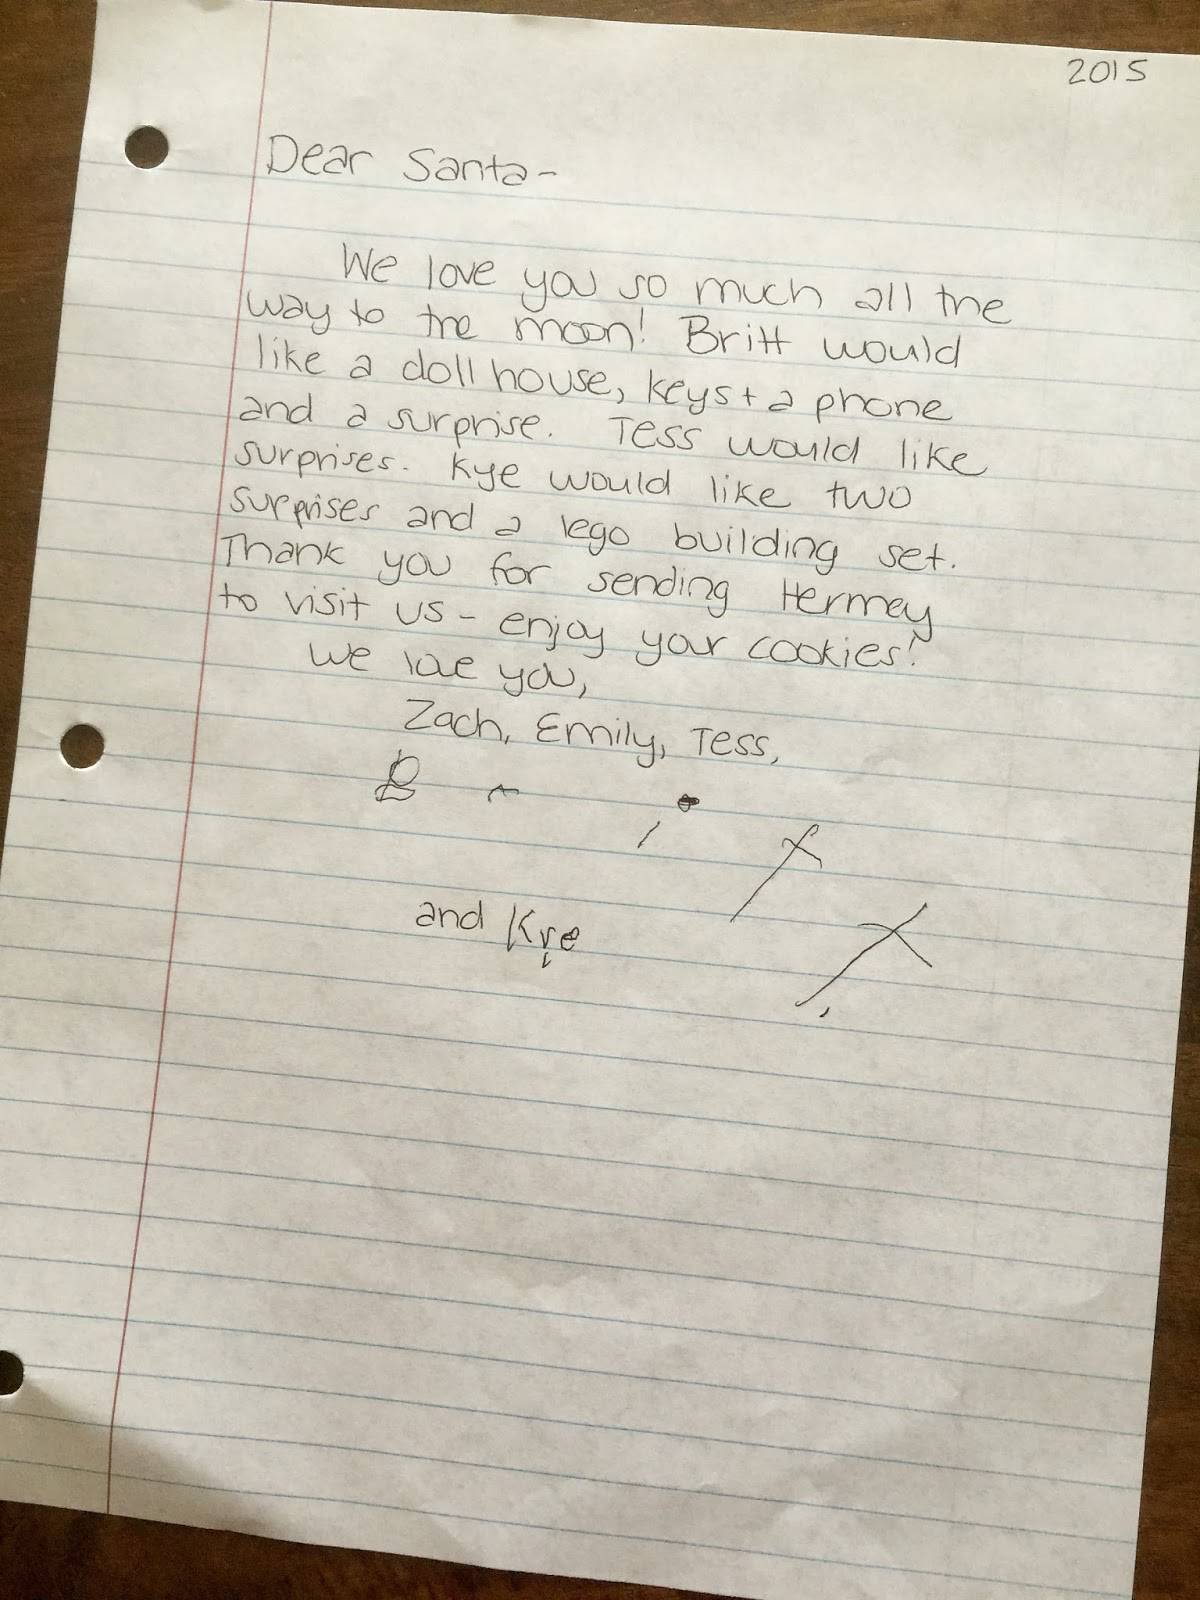 2015
Dear Santa-
We love you so much all the
way to the moon! Britt would
like a doll house, keys + a phone
and a surprise. Tess would like
surprises. Kye would like two
surprises and a lego building set.
Thank you for sending Hermey
to visit us - enjoy your cookies!
We love you,
Zach, Emily, Tess,
and Kye